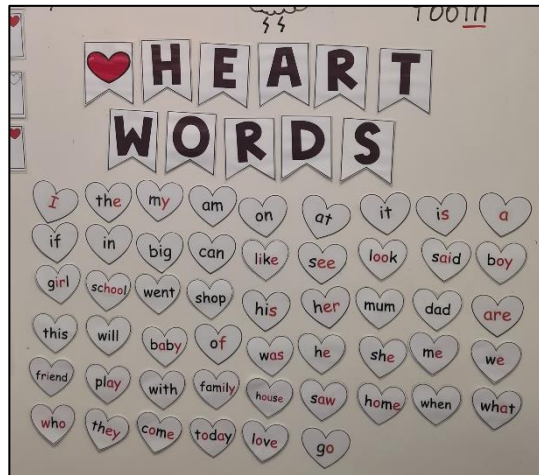 Tooth
HEART
WORDS
I the my am on at it is a
if in big can like see look said boy
girl school went shop his her mum dad are
this will baby of was he she me we
friend play with family house saw home when what
who they come today love go